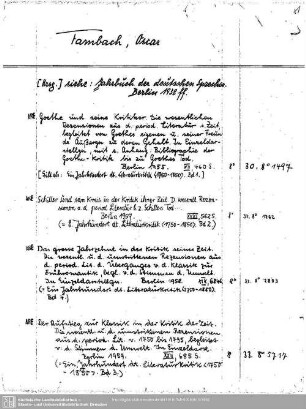 Fambach, Oscar
[Hrsg.] siehe: Jahrbuch der deutschen Sprache.
Berlin 1938 ff.
Goethe und seine Kritiker. Die wesentlichen
Rezensionen aus d. period. Literatur s. Zeit,
begleitet von Goethes eigenen u. seiner Freunde
Äußerungen zu deren Gehalt. In Einzeldar-
stellungen, mit e. Anhang: Bibliographie der
Goethe-Kritik bis zu Goethes Tod.
Berlin 1955. 460 S.
8° 30. 8° 1497.
(Ein Jahrhundert dt. Literaturkritik (1750-1850). Bd. 1.)
Schiller und sein Kreis in der Kritik ihrer Zeit. D. wesentl. Rezen-
sionen a. d. period. Literatur b. z. Schillers Tod
Berlin 1957. 562 S.
8°
(= E. Jahrhundert dt. Literaturkritik (1750-1850). Bd. 2.)
Das grosse Jahrzehnt in der Kritik seiner Zeit.
Die wesentl. u. d. umstrittenen Rezensionen aus
d. period. Lit. d. Überganges v. d. Klassik zur
Frühromantik, begl. v. d. Stimmen d. Umwelt.
In Einzeldarstellungen. Berlin 1958.
8°
(= Ein Jahrhundert dt. Literaturkritik (1750-1850).
Bd 4.)
Der Aufstieg zur Klassik in der Kritik der Zeit.
Die wesentl. u. d. umstrittenen Rezensionen
aus d. period. Lit. v. 1750 bis 1795, begleitet
v. d. Stimmen d. Umwelt. In Einzeldarst.
Berlin 1959. 695 S.
8°
(= Ein Jahrhundert dt. Literaturkritik (1750
- 1850) Bd 3.)